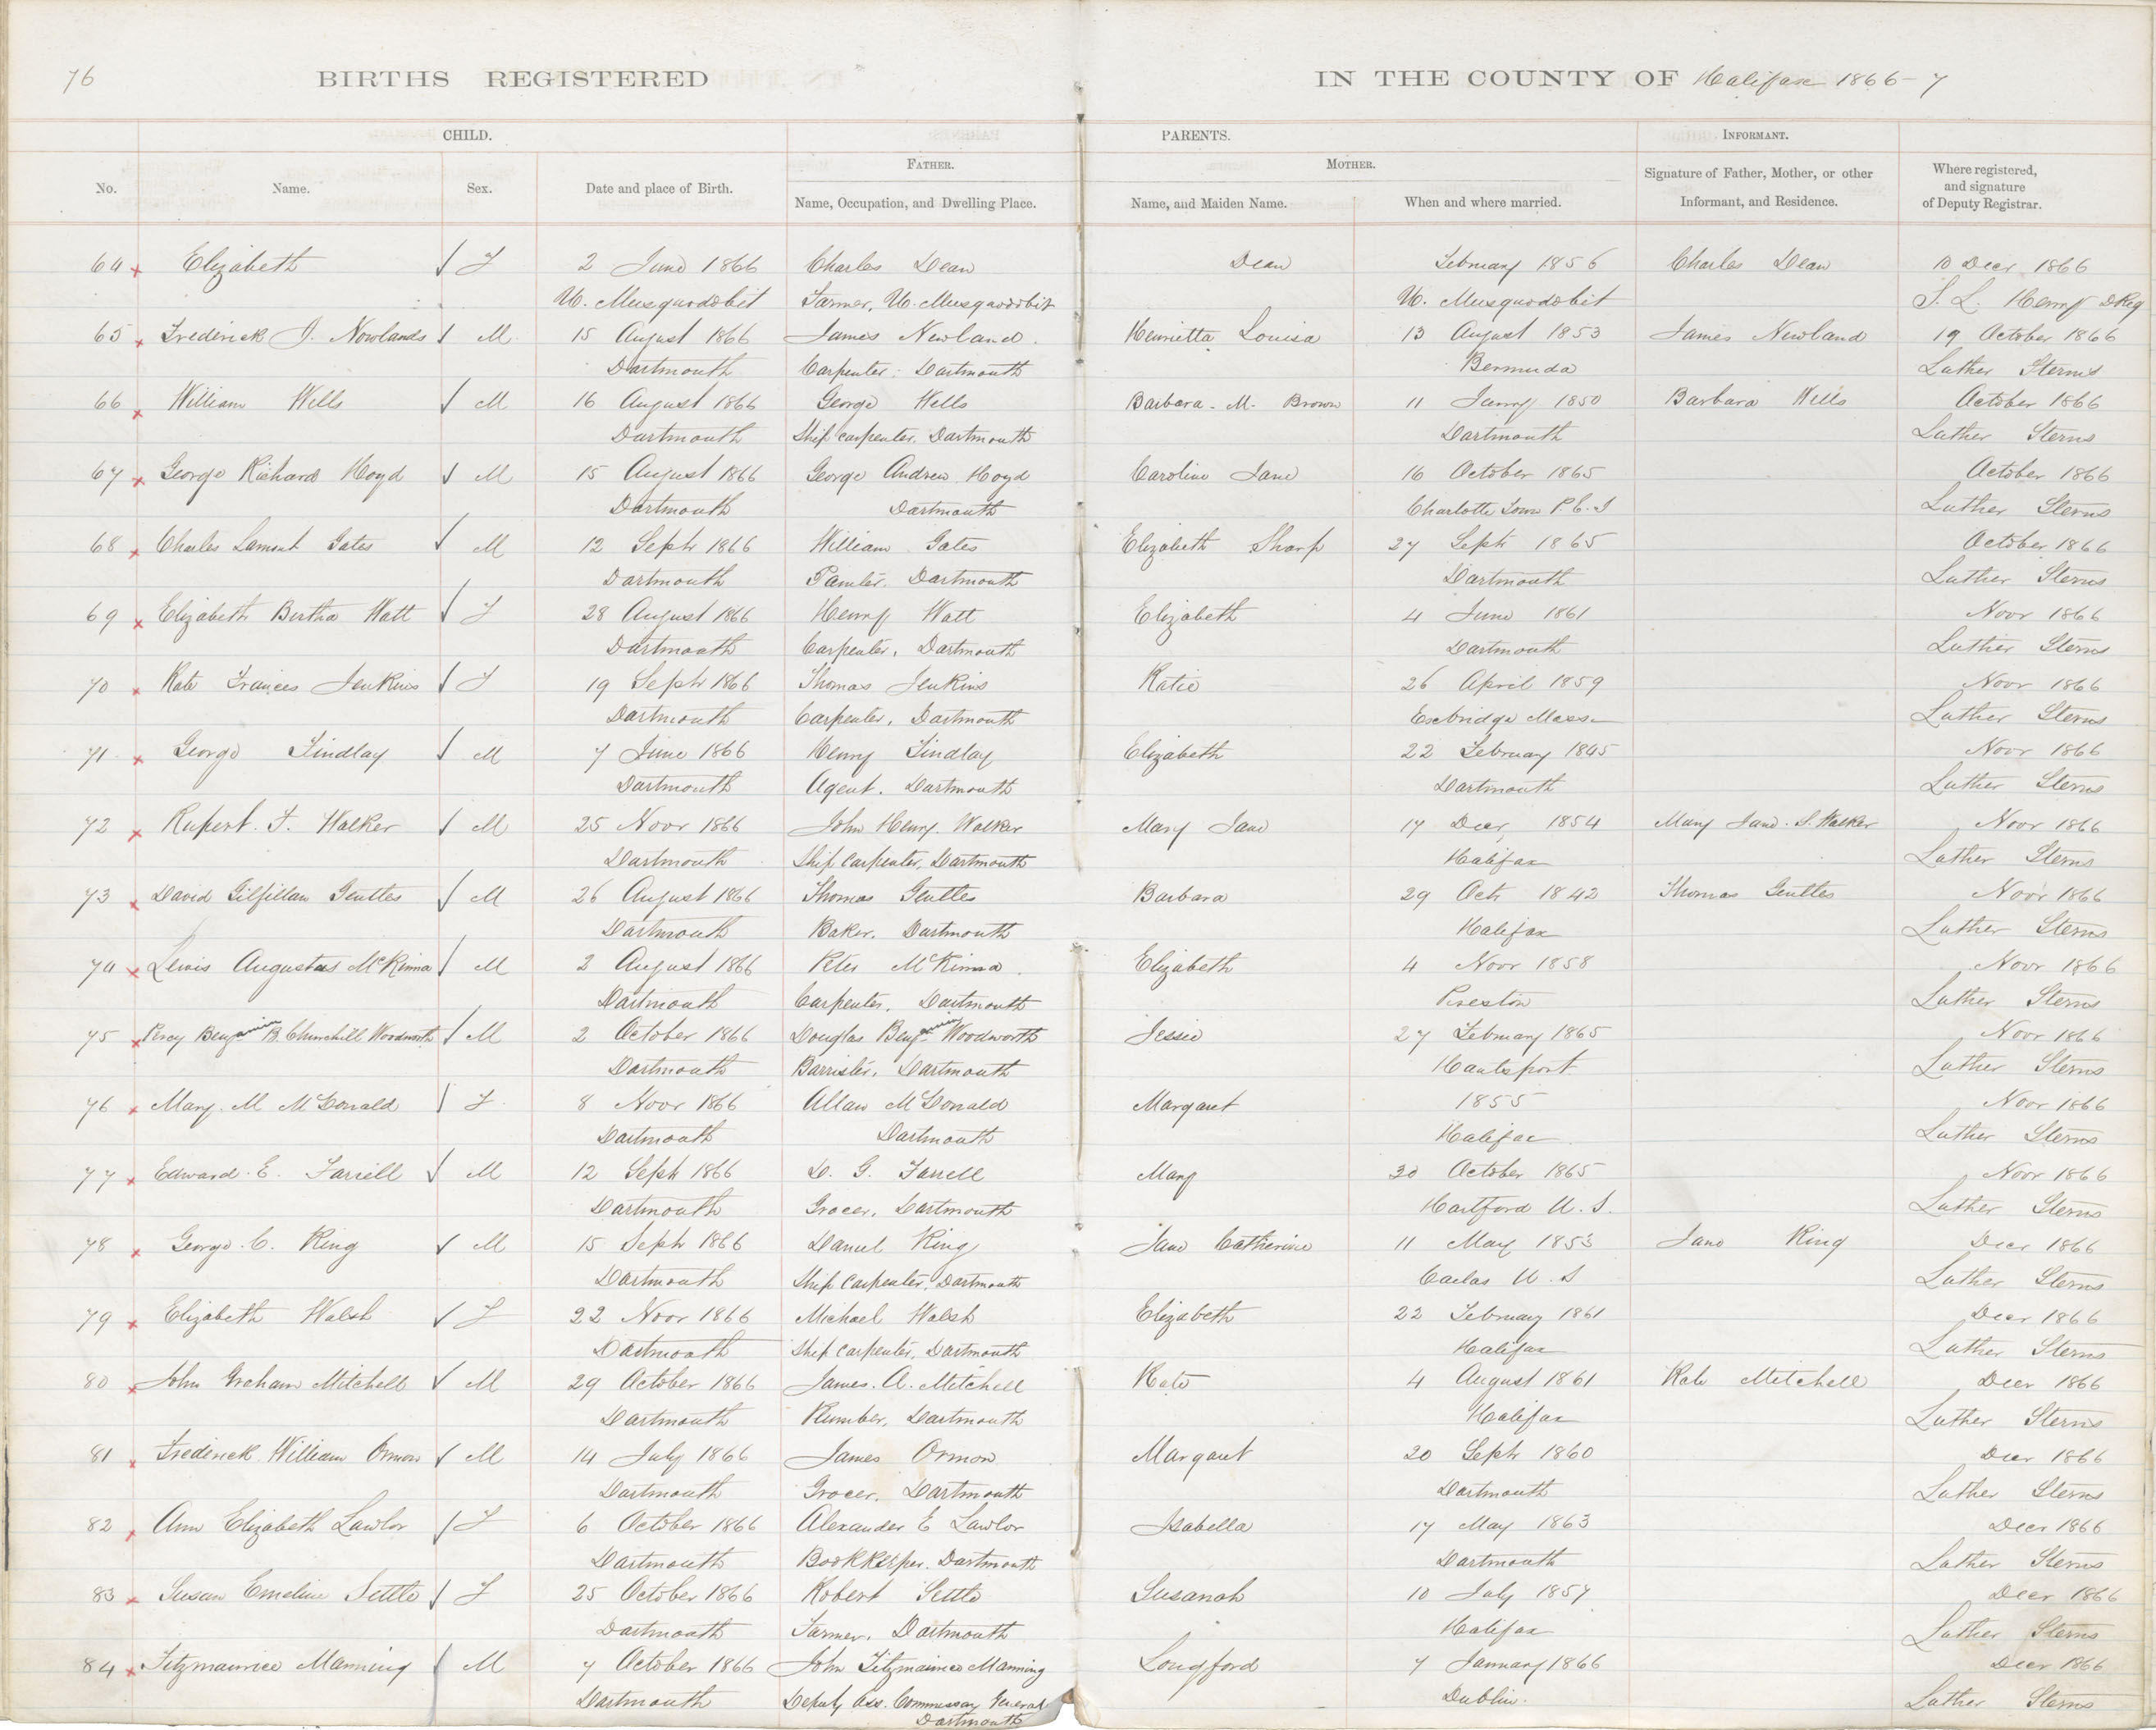 76 BIRTHS REGISTERED IN THE COUNTY OF Halifax 1866-7
CHILD. PARENTS. INFORMANT.
FATHER. MOTHER.
No. Name. Sex. Date and place of Birth. Name, Occupation, and Dwelling Place. Name, and Maiden Name. When and where married. Signature of Father, Mother, or other Informant, and Residence. Where registered, and signature of Deputy Registrar.
64 x Elizabeth √ F 2 June 1866 Charles Dean Dean February 1856 Charles Dean 10 Decr 1866
U. Musquodobit Farmer, U. Musquodobit U. Musquodobit S. L. Henry D Reg
65 x Frederick J. Nowlands √ M 15 August 1866 James Newland. Henrietta Louisa 13 August 1853 James Newland 19 October 1866
Dartmouth Carpenter. Dartmouth Bermuda Luther Sterns
66 x William Wells √ M 16 August 1866 George Wells Barbara. M. Brown 11 Janry 1850 Barbara Wells October 1866
Dartmouth Ship carpenter. Dartmouth Dartmouth Luther Sterns
67 x George Richard Hoyd √ M 15 August 1866 George Andrew Hoyd Caroline Jane 16 October 1865 October 1866
Dartmouth Dartmouth Charlotte Town P.E.I Luther Sterns
68 x Charles Lamont Gates √ M 12 Septr 1866 William Gates Elizabeth Sharp 27 Septr 1865 October 1866
Dartmouth Painter. Dartmouth Dartmouth Luther Sterns
69 x Elizabeth Bertha Watt √ F 28 August 1866 Henry Watt Elizabeth 4 June 1861 Novr 1866
Dartmouth Carpenter, Dartmouth Dartmouth Luther Sterns
70 x Kate Frances Jenkins √ F 19 Septr 1866 Thomas Jenkins Katie 26 April 1859 Novr 1866
Dartmouth Carpenter, Dartmouth Exebridge Mass Luther Sterns
71. x George Findlay √ M 7 June 1866 Henry Findlay Elizabeth 22 February 1845 Novr 1866
Dartmouth Agent. Dartmouth Dartmouth Luther Sterns
72 x Rupert. F. Walker √ M 25 Novr 1866 John Henry. Walker Mary Jane 17 Decr 1854 Mary Jane. S. Walker Novr 1866
Dartmouth Ship Carpenter, Dartmouth Halifax Luther Sterns
73 x David Gilfillan Gentles √ M 26 August 1866 Thomas Gentles Barbara 29 Octr 1842 Thomas Gentles Novr 1866
Dartmouth Baker. Dartmouth Halifax Luther Sterns
74 x Lewis Augustus McKinna √ M 2 August 1866 Peter McKinna. Elizabeth 4 Novr 1858 Novr 1866
Dartmouth Carpenter. Dartmouth Preston Luther Sterns
75 x Percy Benjamin B. Churchill Woodworth √ M 2 October 1866 Douglas Benjamin Woodworth Jessie 27 February 1865 Novr 1866
Dartmouth Barrister. Dartmouth Hantsport Luther Sterns
76 x Mary. M McDonald √ F. 8 Novr 1866 Allan McDonald Margaret 1855 Novr 1866
Dartmouth Dartmouth Halifax Luther Sterns
77 x Edward. E. Farrell √ M 12 Septr 1866 D. G. Farrell Mary 30 October 1865 Novr 1866
Dartmouth Grocer, Dartmouth Hartford U.S. Luther Sterns
78 x George. C. King √ M 15 Septr 1866 Daniel King Jane Catherine 11 May 1853 Jane King Decr 1866
Dartmouth Ship Carpenter, Dartmouth Caelas U.S Luther Sterns
79 x Elizabeth Walsh √ F 22 Novr 1866 Michael Walsh Elizabeth 22 February 1861 Decr 1866
Dartmouth Ship Carpenter, Dartmouth Halifax Luther Sterns
80 x John Graham Mitchell √ M 29 October 1866 James. A. Mitchell Kate 4 August 1861 Kate Mitchell Decr 1866
Dartmouth Plumber, Dartmouth Halifax Luther Sterns
81 x Frederick William Ormon √ M 14 July 1866 James Ormon Margaret 20 Septr 1860 Decr 1866
Dartmouth Grocer, Dartmouth Dartmouth Luther Sterns
82 x Ann Elizabeth Lawlor √ F 6 October 1866 Alexander E Lawlor Isabella 17 May 1863 Decr 1866
Dartmouth Bookkeeper. Dartmouth Dartmouth Luther Sterns
83 x Susan Emeline Settle √ F 25 October 1866 Robert Settle Susanah 10 July 1857 Decr 1866
Dartmouth Farmer. Dartmouth Halifax Luther Sterns
84 x Fitzmaurice Manning √ M 7 October 1866 John Fitzmaurice Manning Longford 7 January 1866 Decr 1866
Dartmouth Deputy Ass. Commissay General Dublin. Luther Sterns
Dartmouth